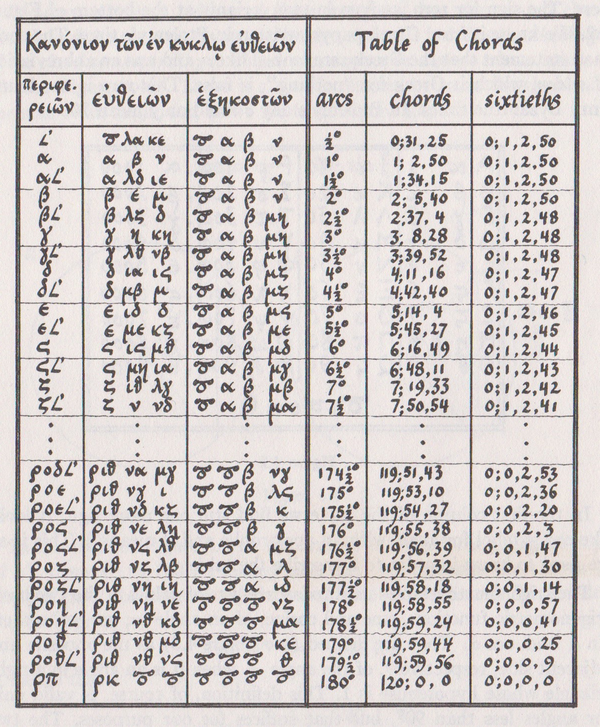 Κανόνιον τῶν ἐν κύκλῳ εὐθειῶν Table of Chords
περιφε-
ρειῶν εὐθειῶν ἑξηκοστῶν arcs chords sixtieths
∠′ ō λα κε ō α β ν ½° 0;31,25 0;1,2,50
α α β ν ō α β ν 1° 1;2,50 0;1,2,50
α∠′ α λδ ιε ō α β ν 1½° 1;34,15 0;1,2,50
β β ε μ ō α β ν 2° 2;5,40 0;1,2,50
β∠′ β λζ δ ō α β μη 2½° 2;37,4 0;1,2,48
γ γ η κη ō α β μη 3° 3;8,28 0;1,2,48
γ∠′ γ λθ νβ ō α β μη 3½° 3;39,52 0;1,2,48
δ δ ια ις ō α β μζ 4° 4;11,16 0;1,2,47
δ∠′ δ μβ μ ō α β μζ 4½° 4;42,40 0;1,2,47
ε ε ιδ δ ō α β μς 5° 5;14,4 0;1,2,46
ε∠′ ε με κζ ō α β με 5½° 5;45,27 0;1,2,45
ς ς ις μθ ō α β μδ 6° 6;16,49 0;1,2,44
ς∠′ ς μη ια ō α β μγ 6½° 6;48,11 0;1,2,43
ζ ζ ιθ λγ ō α β μβ 7° 7;19,33 0;1,2,42
ζ∠′ ζ ν νδ ō α β μα 7½° 7;50,54 0;1,2,41
ροδ∠′ ριθ να μγ ō ō β νγ 174½° 119;51,43 0;0,2,53
ροε ριθ νγ ι ō ō β λς 175° 119;53,10 0;0,2,36
ροε∠′ ριθ νδ κζ ō ō β κ 175½° 119;54,27 0;0,2,20
ρος ριθ νε λη ō ō β γ 176° 119;55,38 0;0,2,3
ρος∠′ ριθ νς λθ ō ō α μζ 176½° 119;56,39 0;0,1,47
ροζ ριθ νζ λβ ō ō α λ 177° 119;57,32 0;0,1,30
ροζ∠′ ριθ νη ιη ō ō α ιδ 177½° 119;58,18 0;0,1,14
ροη ριθ νη νε ō ō ō νζ 178° 119;58,55 0;0,0,57
ροη∠′ ριθ νθ κδ ō ō ō μα 178½° 119;59,24 0;0,0,41
ροθ ριθ νθ μδ ō ō ō κε 179° 119;59,44 0;0,0,25
ροθ∠′ ριθ νθ νς ō ō ō θ 179½° 119;59,56 0;0,0,9
ρπ ρκ ō ō ō ō ō ō 180° 120;0,0 0;0,0,0